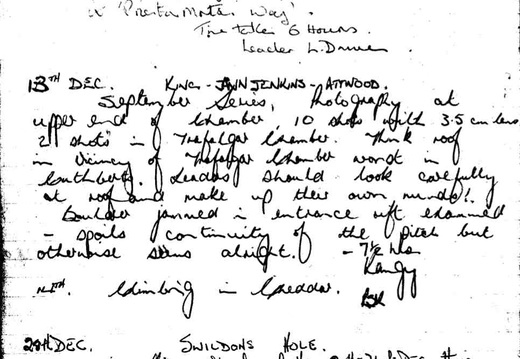 'Prestor Mortis Way'.
Time taken 6 Hours.
Leader L. Drewe
13TH DEC. KING - ANN JENKINS - ATTWOOD.
September Series, Photography at
upper end of Chamber. 10 shots with 3.5 cm lens
2 shots in Trafalgar Chamber. Think roof
in Vicinity of Trafalgar Chamber worst in
Cuthberts. Leaders should look carefully
at roof and make up their own minds!.
Boulder jammed in entrance rift
- spoils continuity of the pitch but
otherwise seems alright. - 7½ hrs
Kangy
Climbing in Cheddar.
DEC. SWILDONS HOLE.